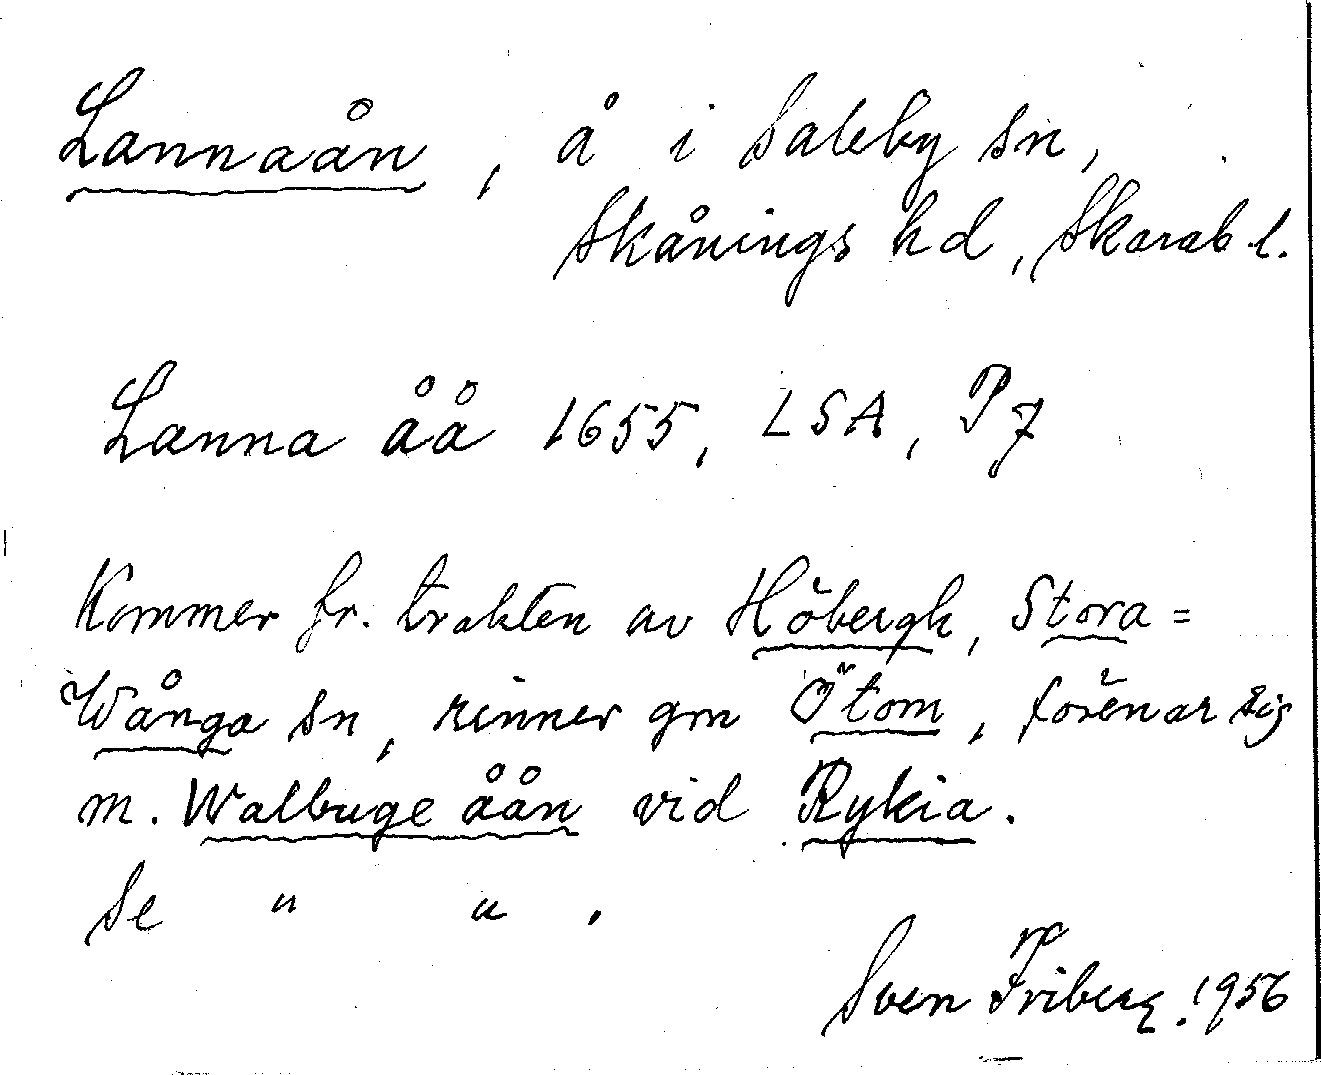 Lannaån, å i Saleby sn,
Skånings hd, Skarab l.
Lanna åå 1655, LSA, P 7
Kommer fr. trakten av Höbergh, Stora=
Wånga sn, rinner gm Ötom, förenar sig
m. Walbuge åån vid Rykia.
Se " " .
Sven Friberg. 1956